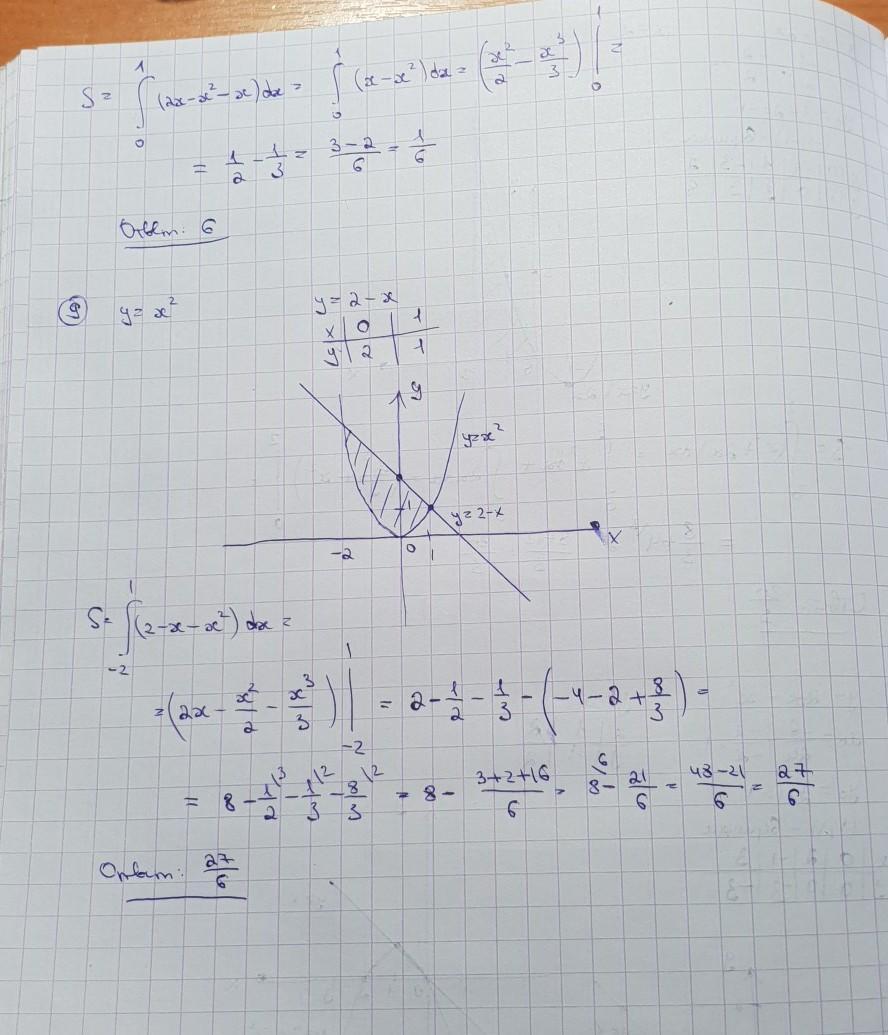 S = ∫₀¹ (2x-x²-x)dx = ∫₀¹ (x-x²)dx = (x²/2 - x³/3) |₀¹ =
= 1/2 - 1/3 = (3-2)/6 = 1/6
Ответ: 6
⑨ y = x² y = 2-x
x | 0 | 1
y | 2 | 1
y
y=x²
1
y=2-x
-2 0 1 x
S = ∫₋₂¹ (2-x-x²) dx =
= (2x - x²/2 - x³/3) |₋₂¹ = 2 - 1/2 - 1/3 - (-4-2+8/3) =
= 8 - 1/2\3 - 1/3\2 - 8/3\2 = 8 - (3+2+16)/6 = 8\6 - 21/6 = (48-21)/6 = 27/6
Ответ: 27/6